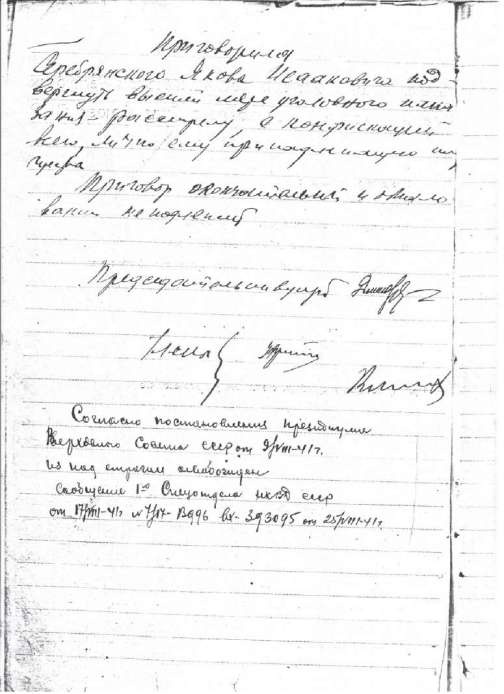 Приговорила
Серебрянского Якова Исааковича под-
вергнуть высшей мере уголовного нака
зания расстрелу с конфискацией
всего, лично ему принадлежащего иму
щества
Приговор окончательный и обжало
ванию не подлежит
Председательствующий
Члены
Согласно постановления Президиума
Верховного Совета СССР от 9/VIII-41г.
из под стражи освобожден
сообщение 1го Спецотдела НКВД СССР
от 17/VIII-41г вх- 393095 от 25/VIII-41г.